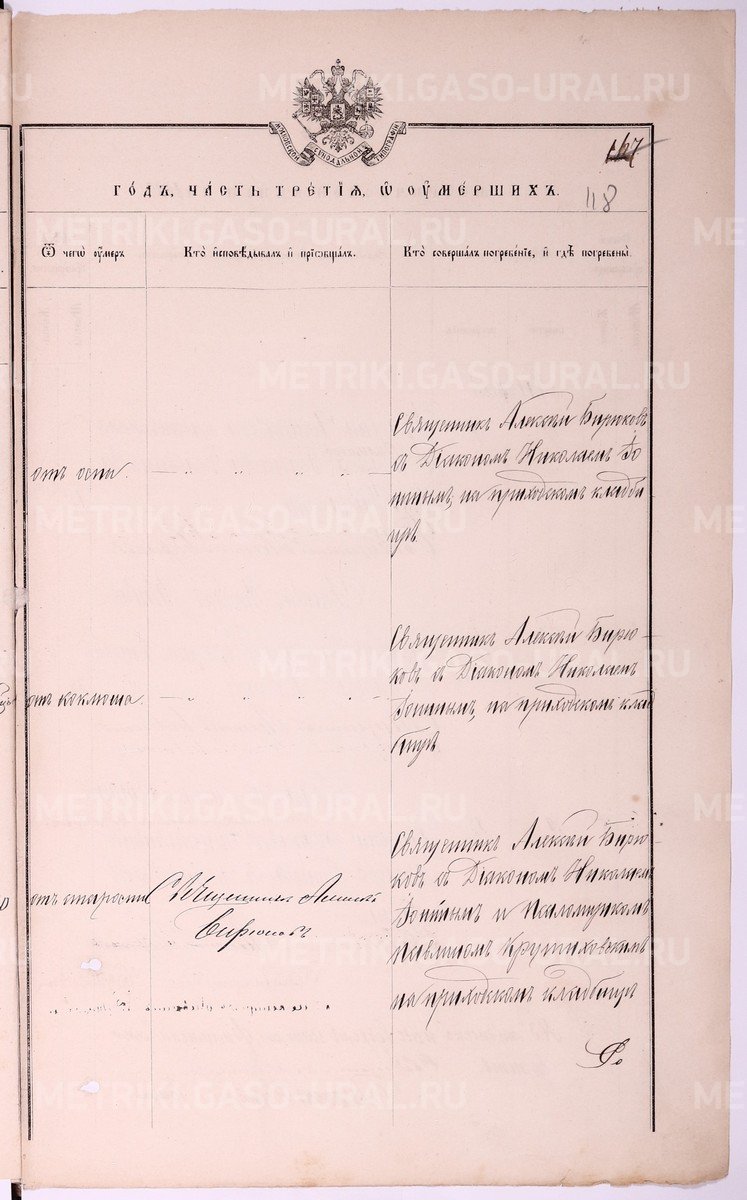 METRIKI.GASO-URAL.RU
167
118
го́дъ, ча́сть тре́тїѧ, ѡ҆ ᲂу҆ме́ршихъ.
Ѿ чегѡ̀ ᲂу҆́меръ
Кто̀ и҆сповѣ́дывалъ и҆ прїѻбща́лъ.
Кто̀ соверша́лъ погребе́нїе, и҆ гдѣ̀ погребены̀.
отъ оспы.
Священникъ Алексѣй Бирюковъ
съ Діакономъ Николаемъ
на приходскомъ кладби
щѣ.
отъ коклюша.
Священникъ Алексѣй Бирю-
ковъ съ Діакономъ Николаемъ
на приходскомъ клад
бищѣ.
отъ старости
Священникъ Алексѣй
Бирюковъ
Священникъ Алексѣй Бирю-
ковъ съ Діакономъ Николаемъ
и Псаломщикомъ
Павлиномъ Крутиховскимъ
на приходскомъ кладбищѣ